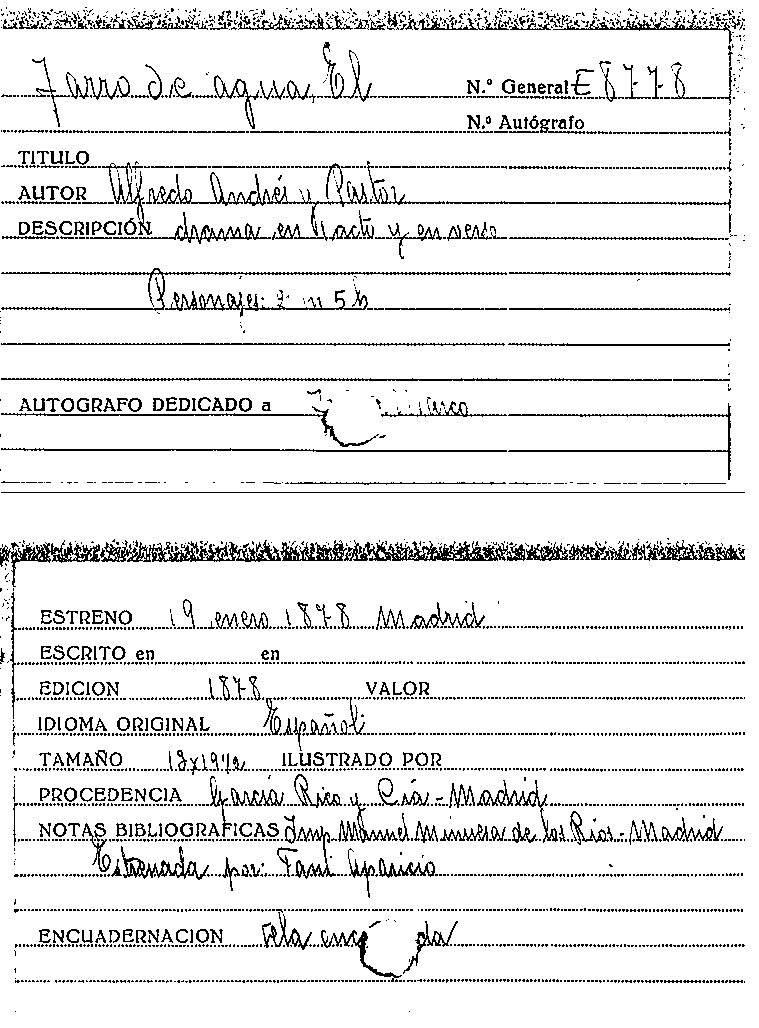 Jarro de agua, El N.º General E 8778
N.º Autógrafo
TITULO
AUTOR Alfredo Andréi y Pastor
DESCRIPCIÓN drama en 1 acto y en verso
Personajes: 2 m 5 h
AUTOGRAFO DEDICADO a
ESTRENO 19 enero 1878 Madrid
ESCRITO en en
EDICION 1878 VALOR
IDIOMA ORIGINAL Español
TAMAÑO ILUSTRADO POR
PROCEDENCIA García Rico y Cía - Madrid
NOTAS BIBLIOGRAFICAS Imp Manuel Minuesa de los Ríos - Madrid
Estrenada por: Aparicio
ENCUADERNACION tela